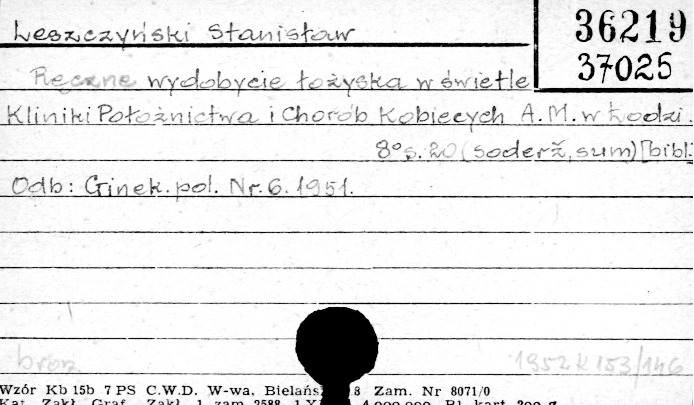 Leszczyński Stanisław
36219
37025
Ręczne wydobycie łożyska w świetle
Kliniki Położnictwa i Chorób Kobiecych A.M. w Łodzi.
8° s. 20 (soderž, sum) [bibl.]
Odb: Ginek. pol. Nr. 6. 1951.
brosz
1952 K 153/146
Wzór Kb 15b 7 PS C.W.D. W-wa, Bielańs 8 Zam. Nr 8071/0
Kat. Zakł. Graf. Zakł. 1 zam. 2588 1.X 4.000.000 Bl. kart. 200 g